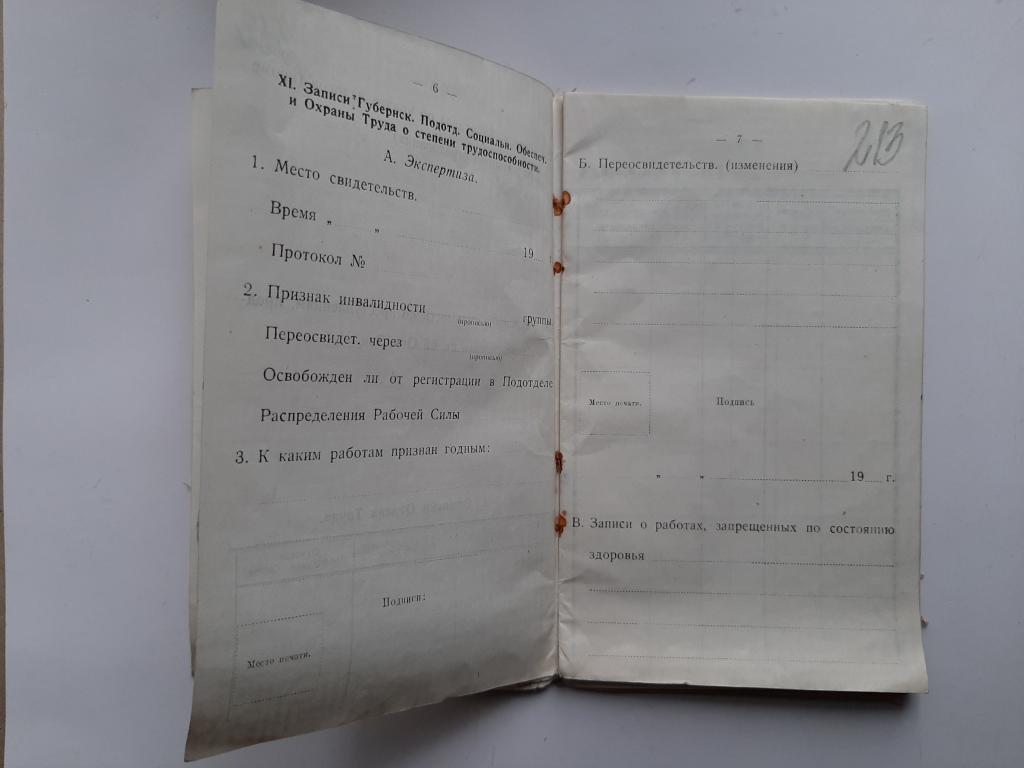 — 6 —
XI. Записи Губернск. Подотд. Социальн. Обеспеч.
и Охраны Труда о степени трудоспособности.
А. Экспертиза.
1. Место свидетельств.
Время „ „ 19
Протокол №
2. Признак инвалидности группы
(прописью)
Переосвидет. через
(прописью)
Освобожден ли от регистрации в Подотделе
Распределения Рабочей Силы
3. К каким работам признан годным:
Подписи:
Место печати.
— 7 —
213
Б. Переосвидетельств. (изменения)
Место печати.
Подпись
„ „ 19 г.
В. Записи о работах, запрещенных по состоянию
здоровья